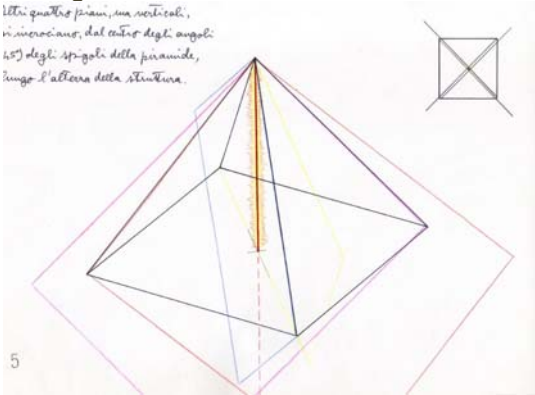 Altri quattro piani, ma verticali,
si incrociano, dal centro degli angoli
45°) degli spigoli della piramide,
lungo l'altezza della struttura.
5